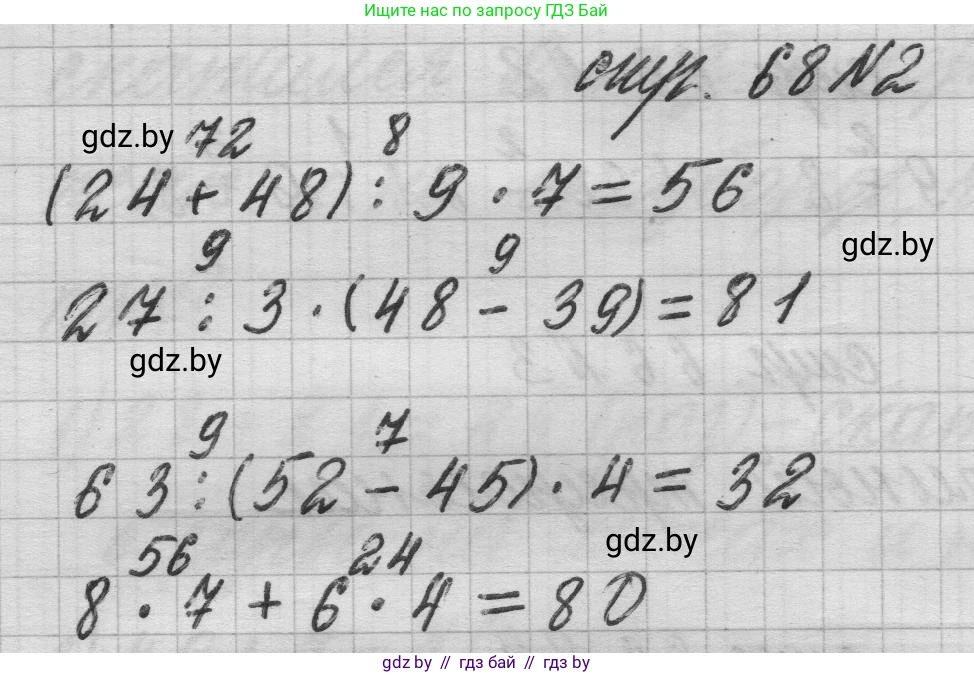 Ищите нас по запросу ГДЗ Бай
стр. 68 N2
gdz.by
72 8
(24 + 48) : 9 · 7 = 56
gdz.by
9 9
27 : 3 · (48 - 39) = 81
gdz.by
9 7
63 : (52 - 45) · 4 = 32
gdz.by
56 24
8 · 7 + 6 · 4 = 80
gdz.by // гдз бай // гдз by